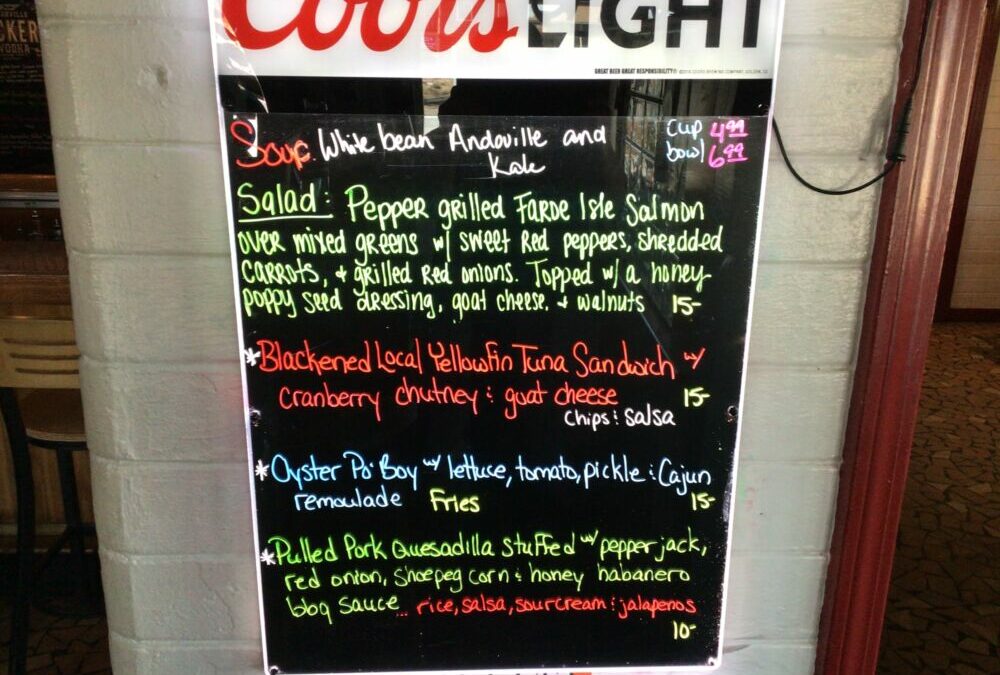 Coors LIGHT
GREAT BEER GREAT RESPONSIBILITY®
Soup: White bean Andouille and
Kale
Cup 4.99
bowl 6.99
Salad: Pepper grilled Faroe Isle Salmon
over mixed greens w/ sweet Red peppers, shredded
carrots, & grilled Red onions. Topped w/ a honey
poppy seed dressing, goat cheese, & walnuts 15-
*Blackened Local Yellowfin Tuna Sandwich w/
cranberry chutney & goat cheese 15-
chips & salsa
*Oyster Po' Boy w/ lettuce, tomato, pickle & Cajun
remoulade Fries 15-
*Pulled Pork Quesadilla stuffed w/ pepper jack,
red onion, shoepeg corn & honey habanero
bbq sauce... rice, salsa, sour cream & jalapenos
10-